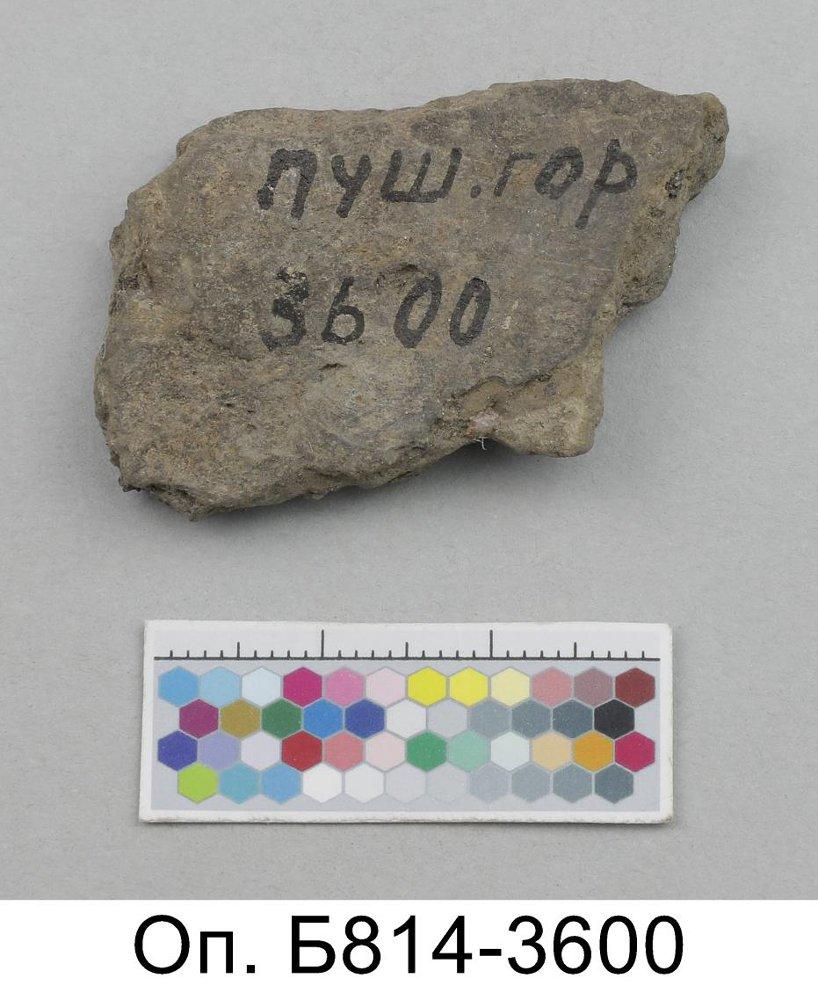 пуш.гор
3600
Оп. Б814-3600